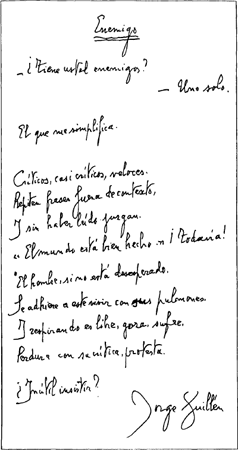 Enemigo
— ¿Tiene usted enemigos?
— Uno solo.
El que me simplifica.
Críticos, casi críticos, veloces.
Repiten frases fuera de contexto,
Y sin haber leído juzgan.
« El mundo está bien hecho » ¡Todavía!
El hombre, si no está desesperado.
Se adhiere a este vivir con sus pulmones
Y respirando es libre, goza, sufre.
Perdura con su crítica, protesta.
¿Inútil insistir?
Jorge Guillén